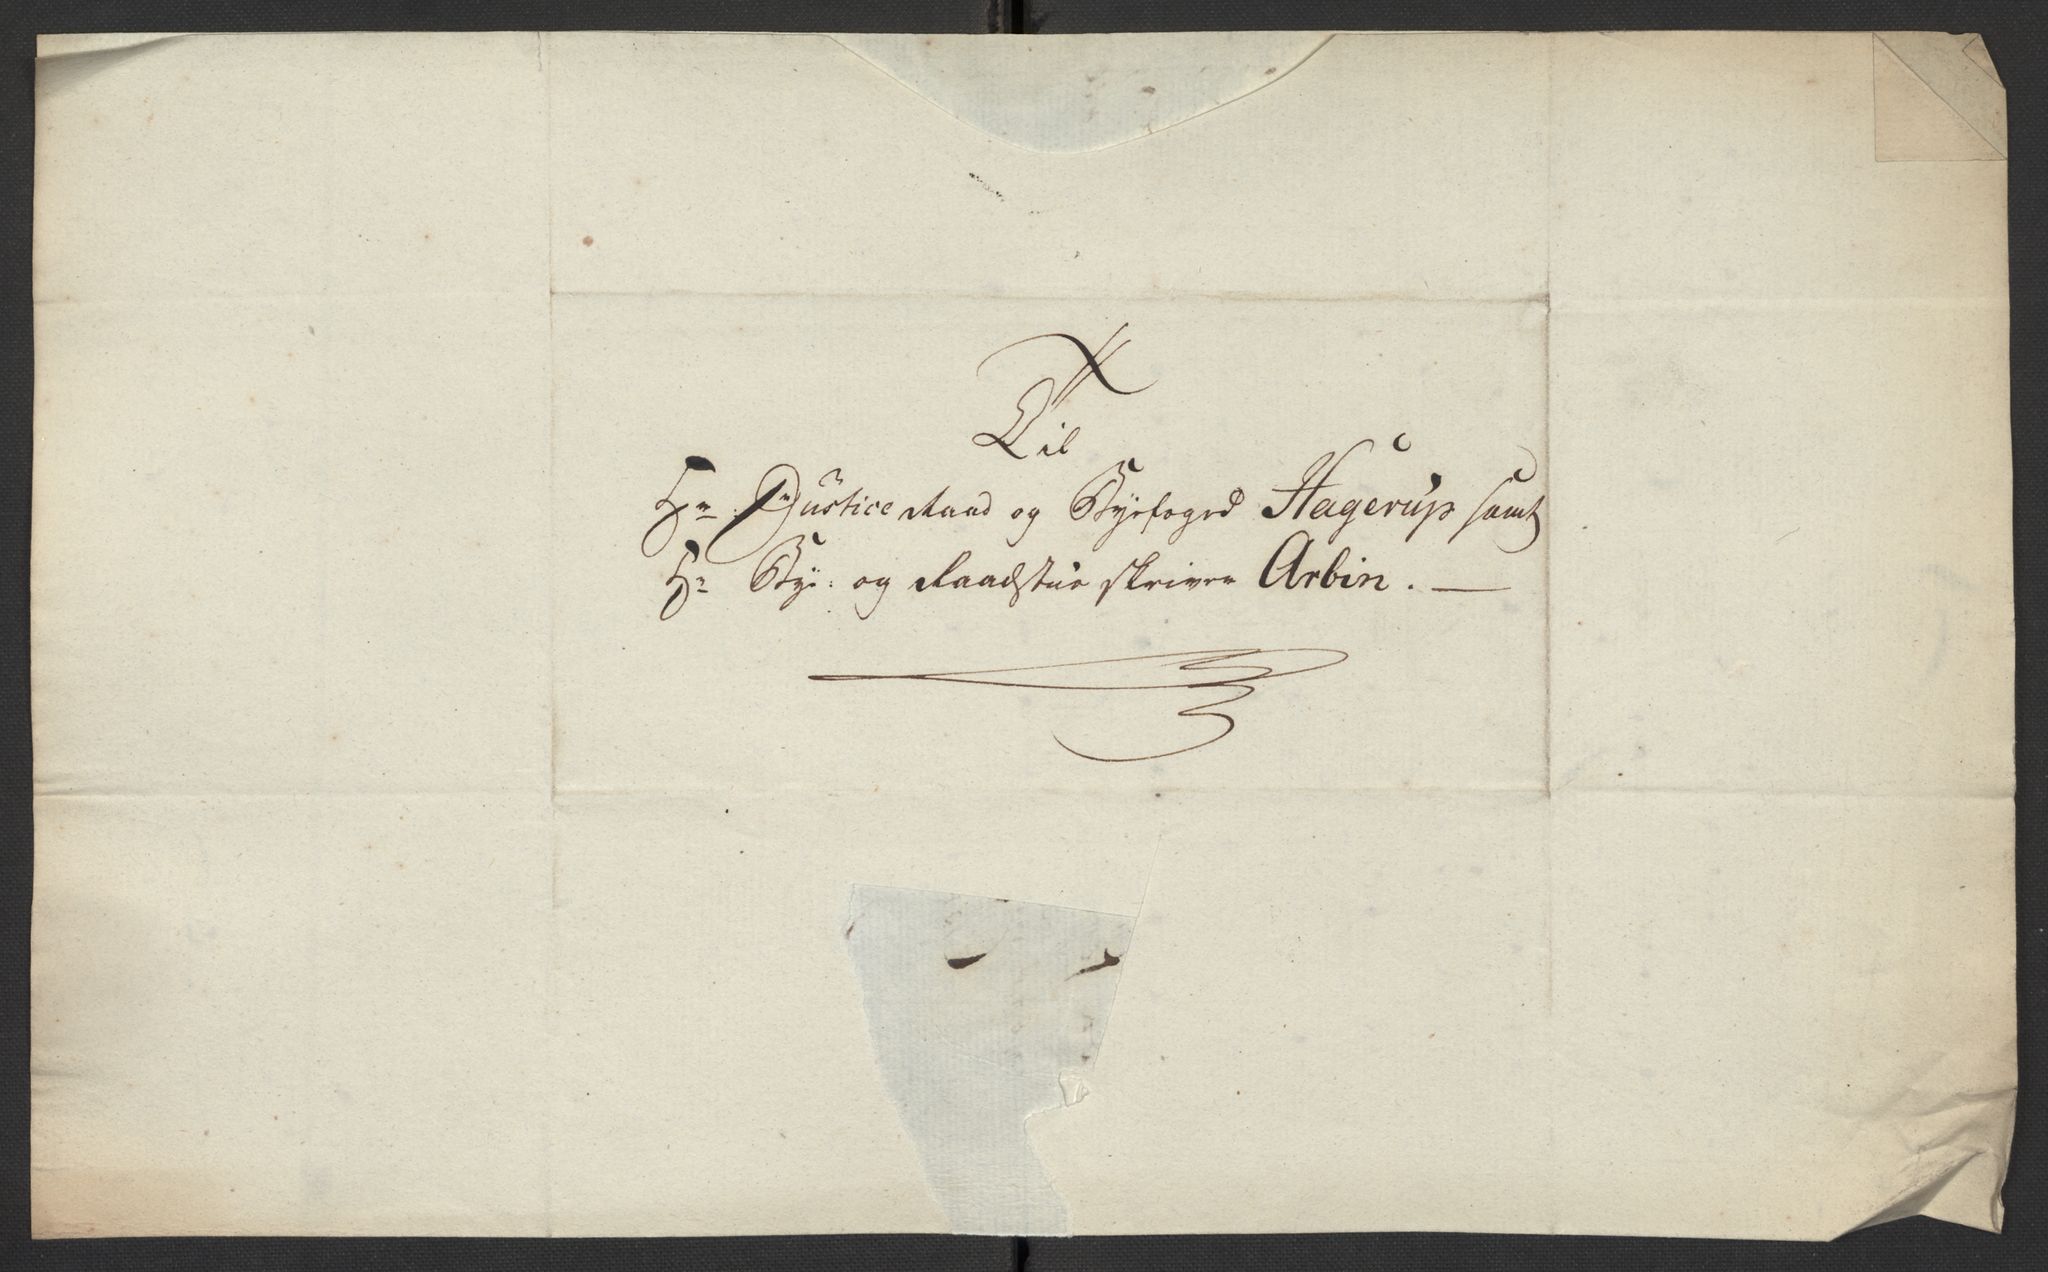 Til
Hr. Justice Raad og Byefoged Hagerup samt
Hr. Bye: og Raadstue skriver Arbin. —